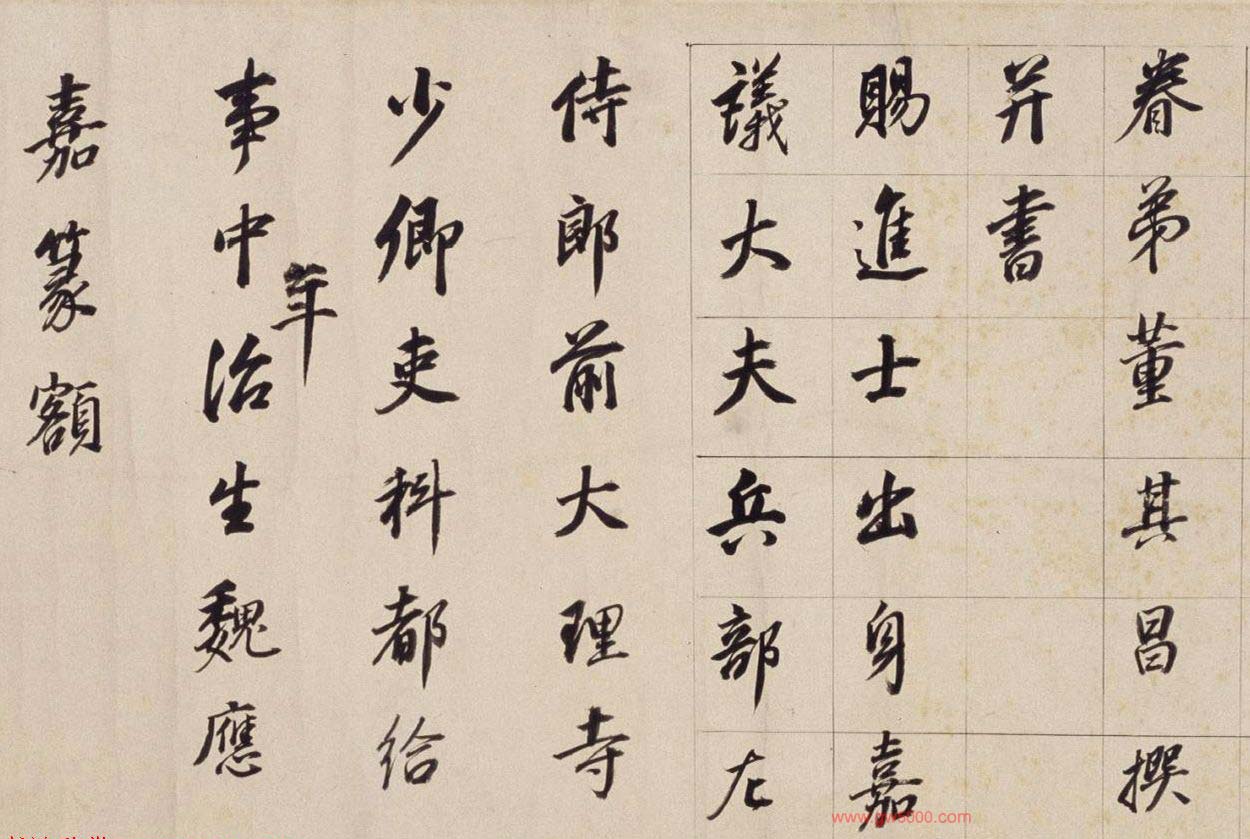 眷弟董其昌撰
并書
賜進士出身嘉
議大夫兵部左
侍郎前大理寺
少卿吏科都給
事中治生魏應
年
嘉篆額